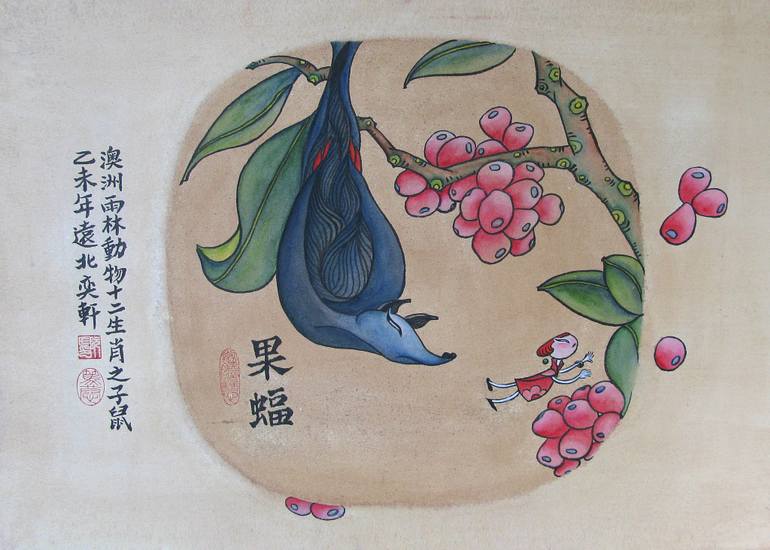 澳洲雨林動物十二生肖之子鼠
乙未年遠北奕軒
果蝠